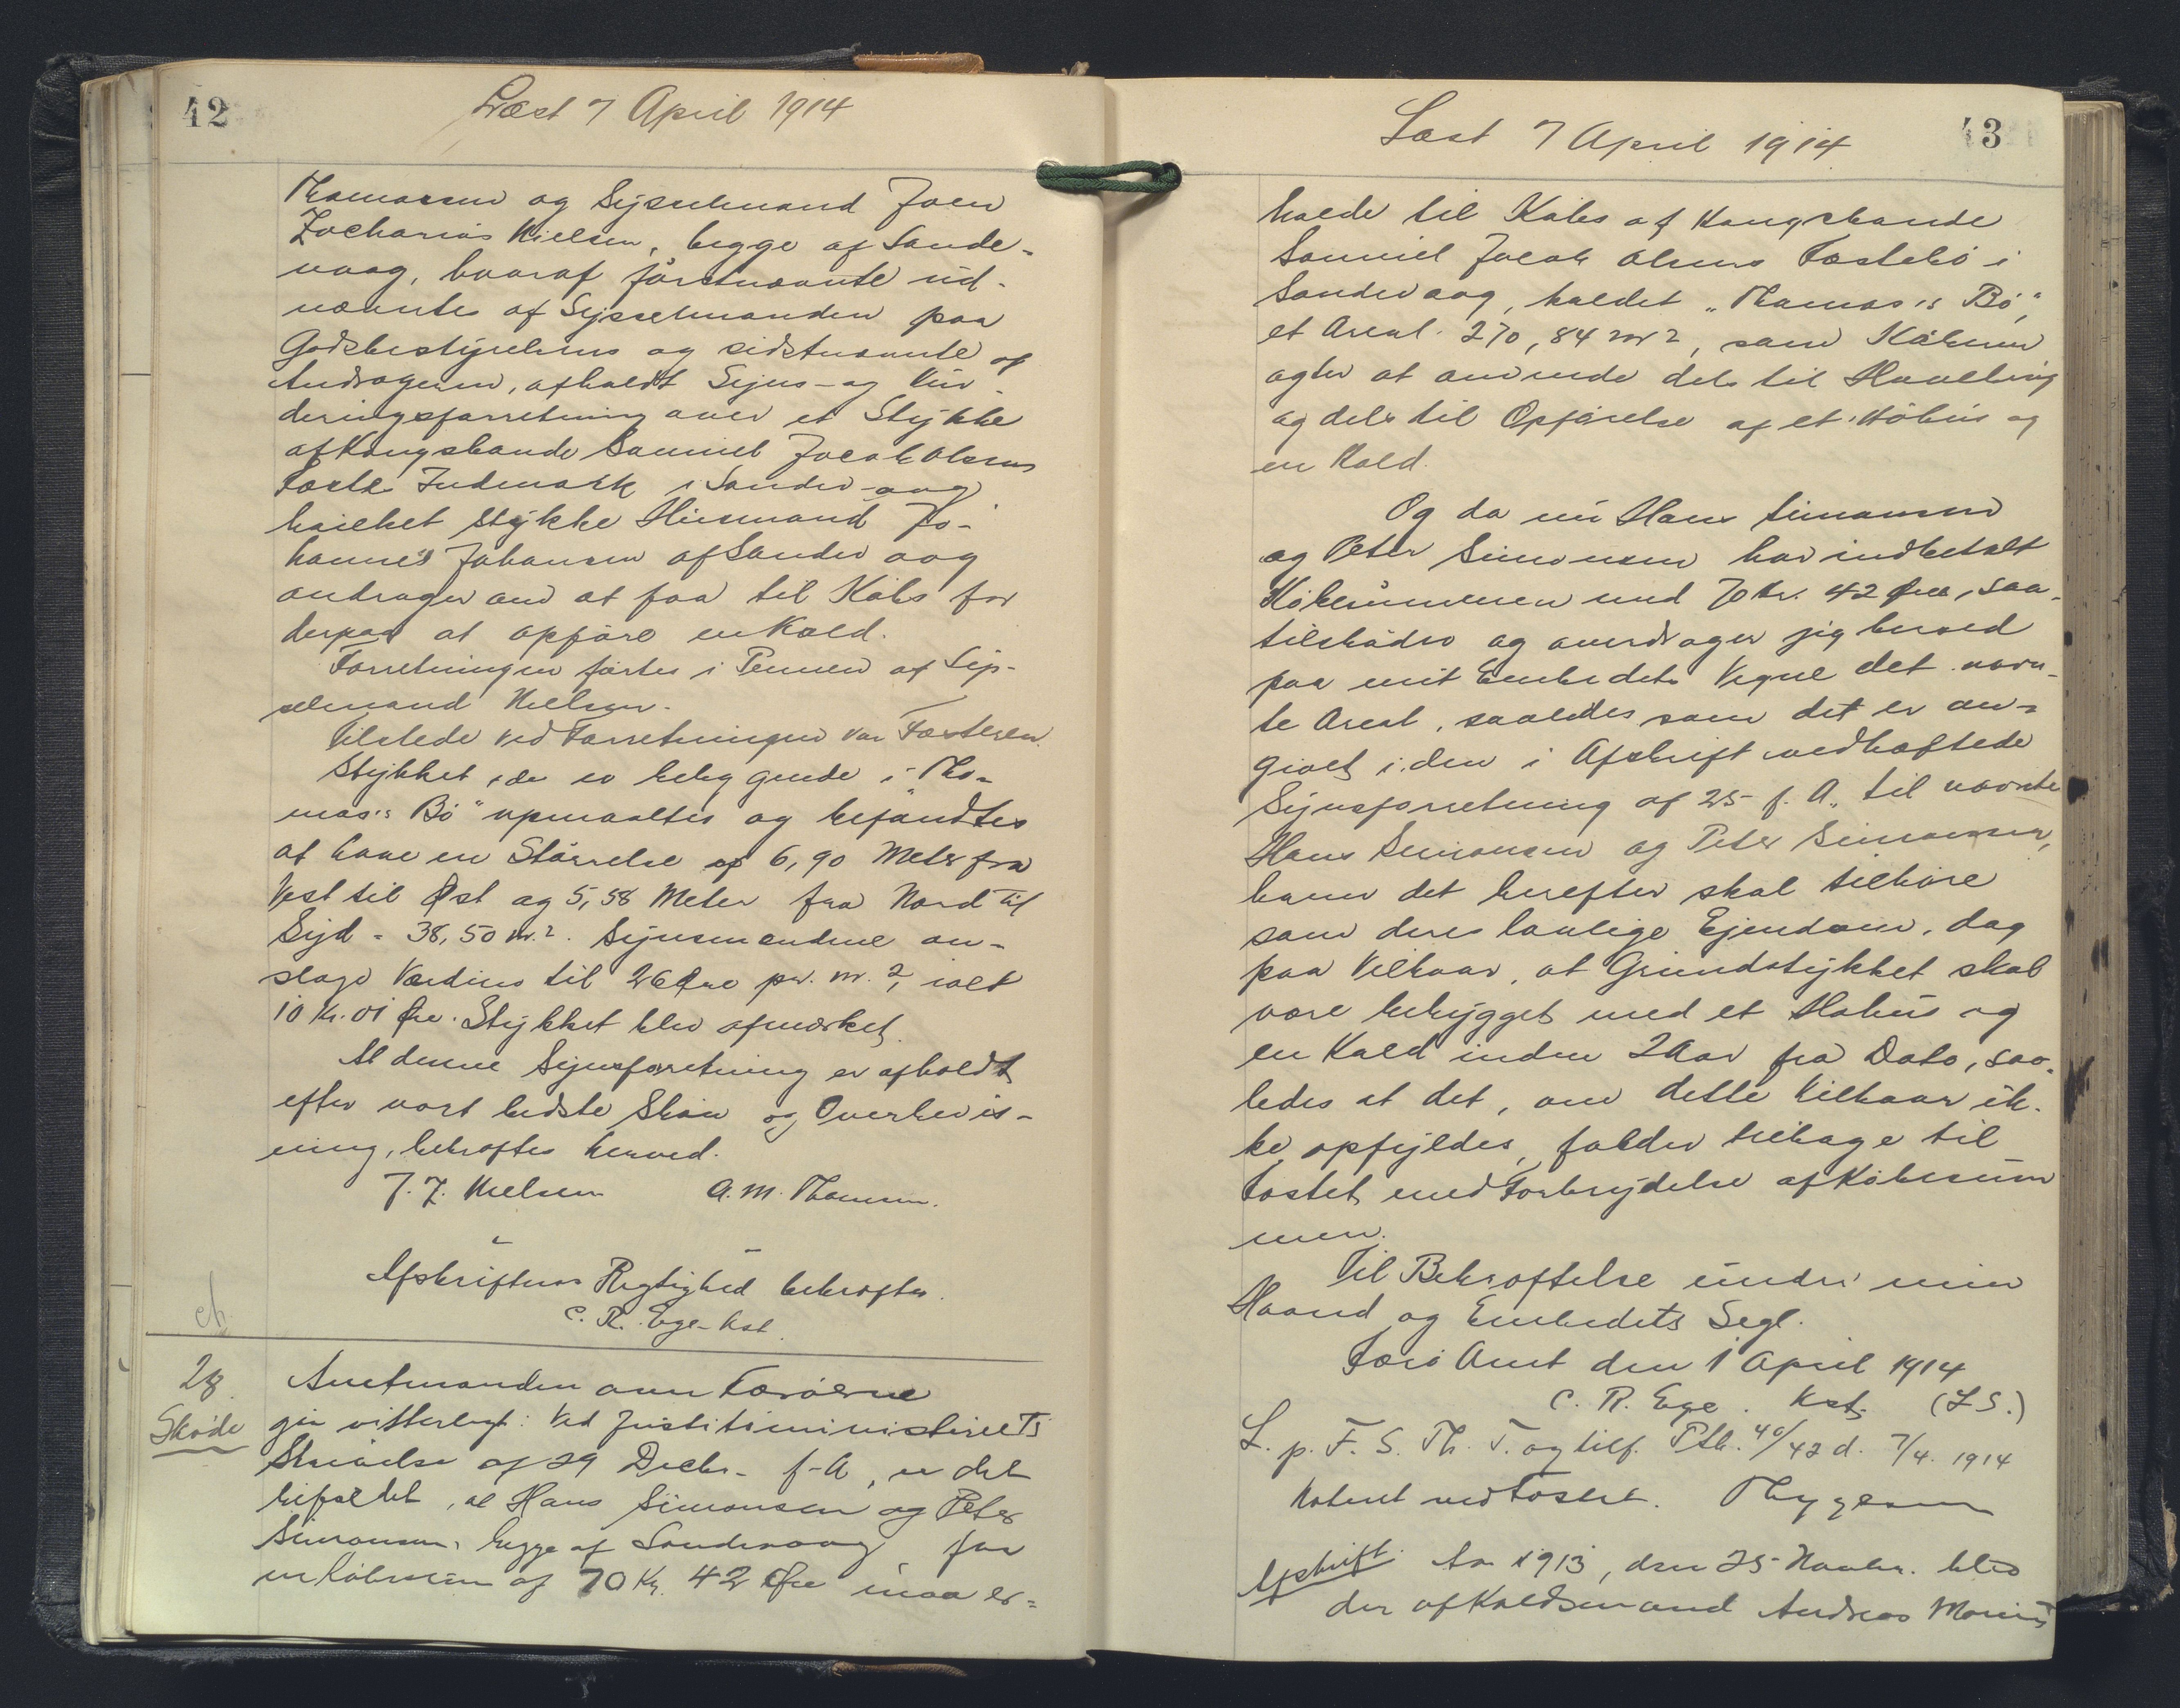 42
Læst 7 April 1914
Thomassen og Sysselmand Joen
Zacharias Nielsen, begge af Sande-
vaag, hvoraf förstnævnte ud-
nævntes af Sysselmanden paa
Godsbestyrelsens og sidstnævnte af
Andrageren, afholdt Syns- og Vur-
deringsforretning over et Stykke
af Kongsbonde Samuel Jacob Olsens
Fæste Indmark i Sandevaag
hvilket Stykke Husmand Jo-
hannes Johansen af Sandevaag
andrager om at faa til Købs for
derpaa at opføre en Kald.
Forretningen førtes i Pennen af Sys-
selmand Nielsen.
Tilstede ved Forretningen var Fæsteren.
Stykket, der er beliggende i "Tho-
mas's Bö" upmaaltes og befandtes
at have en Störrelse af 6,90 Meter fra
Vest til Øst og 5,58 Meter fra Nord til
Syd = 38,50 m.². Synsmændene an-
slago Værdien til 26 Øre pr. m.², ialt
10 Kr. 01 Øre. Stykket blev afmærket.
At denne Synsforretning er afholdt
efter vort bedste Skön og Overbevis-
ning, bekræftes herved.
J. Z. Nielsen A. M. Thomsen.
Afskriftens Rigtighed bekræftes.
C. R. Ege Kst.
28
Skøde
Amtmanden over Færöerne
gör vitterligt: Ved Justitsministeriets
Skrivelse af 29 Decbr. f.A, er det
bifaldet, at Hans Simonsen og Peter
Simonsen, begge af Sandevaag, for
en Købesum af 70 Kr. 42 Øre maa er-
43
Læst 7 April 1914
holde til Købs af Kongsbonde
Samuel Jacob Olsens Fæstebö i
Sandevaag, kaldet "Thomas's Bö",
et Areal 270,84 m², som Köberne
agter at anvende dels til Havebrug
og dels til Opførelse af et Höhus og
en Kald.
Og da nu Hans Simonsen
og Peter Simonsen har indbetalt
Købesummen med 70 Kr. 42 Øre, saa
tilskøder og overdrager jeg herved
paa mit Embedets Vegne det nævn-
te Areal, saaledes som det er an-
givet i den i Afskrift vedhæftede
Synsforretning af 25 f. A. til nævnte
Hans Simonsen og Peter Simonsen,
hvem det herefter skal tilhøre
som deres lovlige Ejendom, dog
paa Vilkaar, at Grundstykket skal
være bebygget med et Höhus og
en Kald inden 2 Aar fra Dato, saa-
ledes at det, om dette Vilkaar ik-
ke opfyldes, falder tilbage til
Fæstet med Forbrydelse af Købesum
men.
Til Bekræftelse under min
Haand og Embedets Segl.
Færö Amt den 1 April 1914
C. R. Ege. Kst. (L.S.)
L. p. F. S. Th. T. og tilf. Ptk. 40/42 d. 7/4. 1914
Noteret ved Fæstet. Thygesen
Afskrift. Aar 1913, den 25 Novbr. blev
der af Kaldsmand Andreas Morius